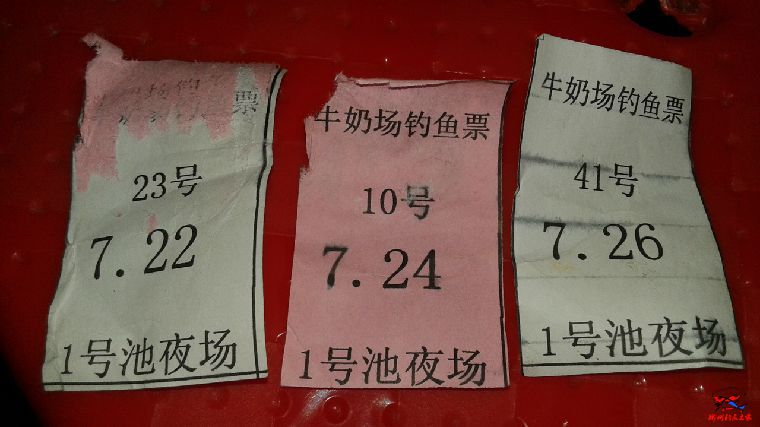 牛奶场钓鱼票
23号
7.22
1号池夜场
牛奶场钓鱼票
10号
7.24
1号池夜场
牛奶场钓鱼票
41号
7.26
1号池夜场